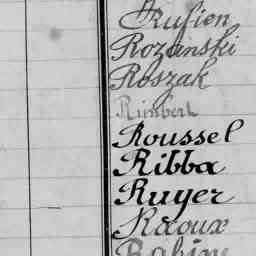 Rufien
Rozainski
Roszak
Rimbert
Roussel
Ribba
Ruyer
Raoux
Rabine